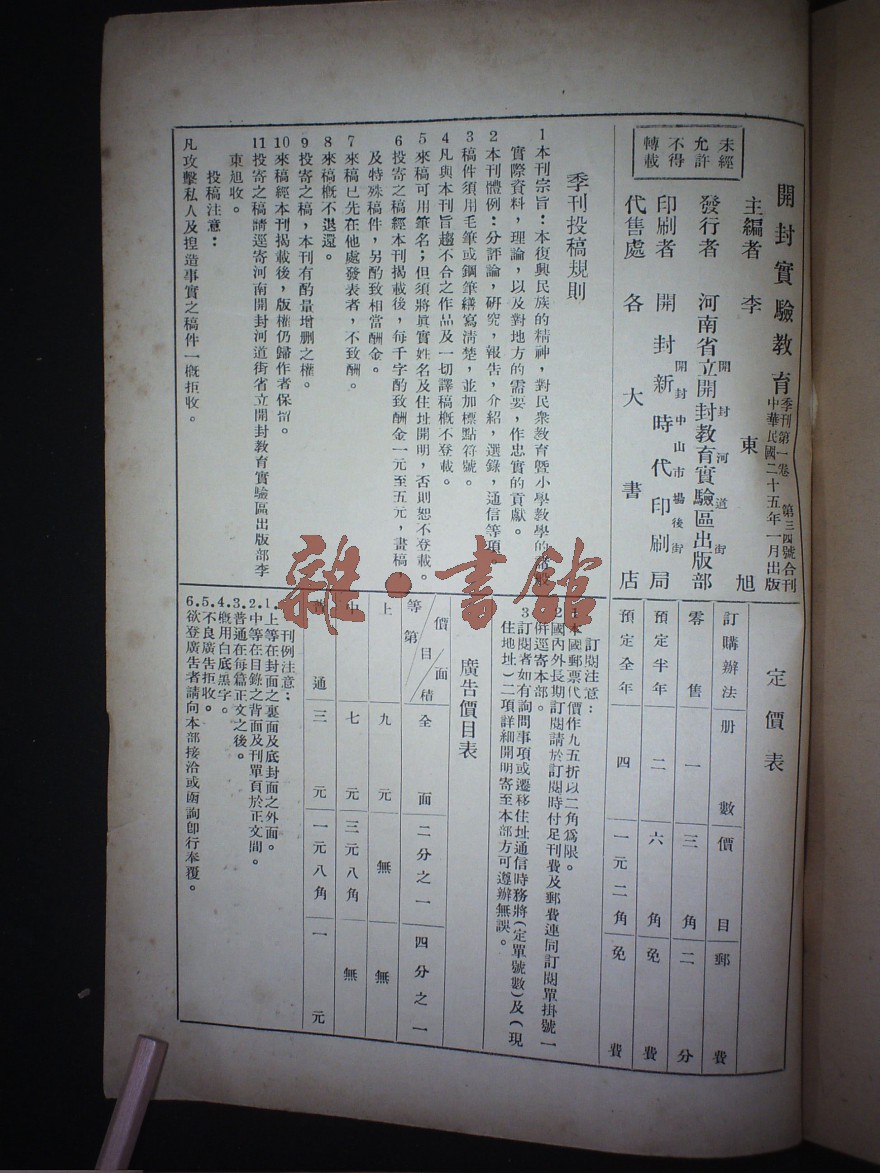 開封實驗教育
季刊第一卷 第三四號合刊
中華民國二十五年一月出版
主編者 李東旭
發行者 河南省立開封教育實驗區出版部
開封河道街
印刷者 開封新時代印刷局
開封中山市場後街
代售處 各大書店
未經
允許
不得
轉載
季刊投稿規則
1本刊宗旨：本復興民族的精神，對民衆教育暨小學教學的
實際資料，理論，以及對地方的需要，作忠實的貢獻。
2本刊體例：分評論，研究，報告，介紹，選錄，通信等項
3稿件須用毛筆或鋼筆繕寫清楚，並加標點符號。
4凡與本刊旨趨不合之作品及一切譯稿概不登載。
5來稿可用筆名；但須將眞實姓名及住址開明，否則恕不登載。
6投寄之稿經本刊揭載後，每千字酌致酬金一元至五元，畫稿
及特殊稿件，另酌致相當酬金。
7來稿已先在他處發表者，不致酬。
8來稿概不退還。
9投寄之稿，本刊有酌量增删之權。
10來稿經本刊揭載後，版權仍歸作者保留。
11投寄之稿請逕寄河南開封河道街省立開封教育實驗區出版部李
東旭收。
投稿注意：
凡攻擊私人及揑造事實之稿件一概拒收。
定價表
訂購辦法 册數 價目 郵費
零售 一 三角 二分
預定半年 二 六角 免費
預定全年 四 一元二角 免費
訂閱注意：
1本國郵票代價作九五折以二角爲限。
2國內外長期訂閱請於訂閱時付足刊費及郵費連同訂閱單掛號一
併逕寄本部。
3訂閱者如有詢問事項或遷移住址通信時務將（定單號數）及（現
住地址）二項詳細開明寄至本部方可遵辦無誤。
廣告價目表
等第 價目 面積 全面 二分之一 四分之一
上 九元 無 無
中 七元 三元八角 無
通 三元 一元八角 一元
刊例注意：
1.上等在封面之裏面及底封面之外面。
2.中等在目錄之背面及刊單頁於正文間。
3.普通在每篇正文之後。
4.概用白底黑字。
5.不良廣告拒收。
6.欲登廣告者請向本部接洽或函詢卽行奉覆。
雜·書館